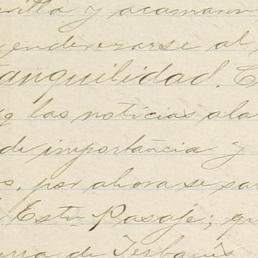 villa y acamann
enderezarse al
tranquilidad. E
q las noticias ala
de importancia y
s, por ahora se sa
Este Pasaje; qu
rra de